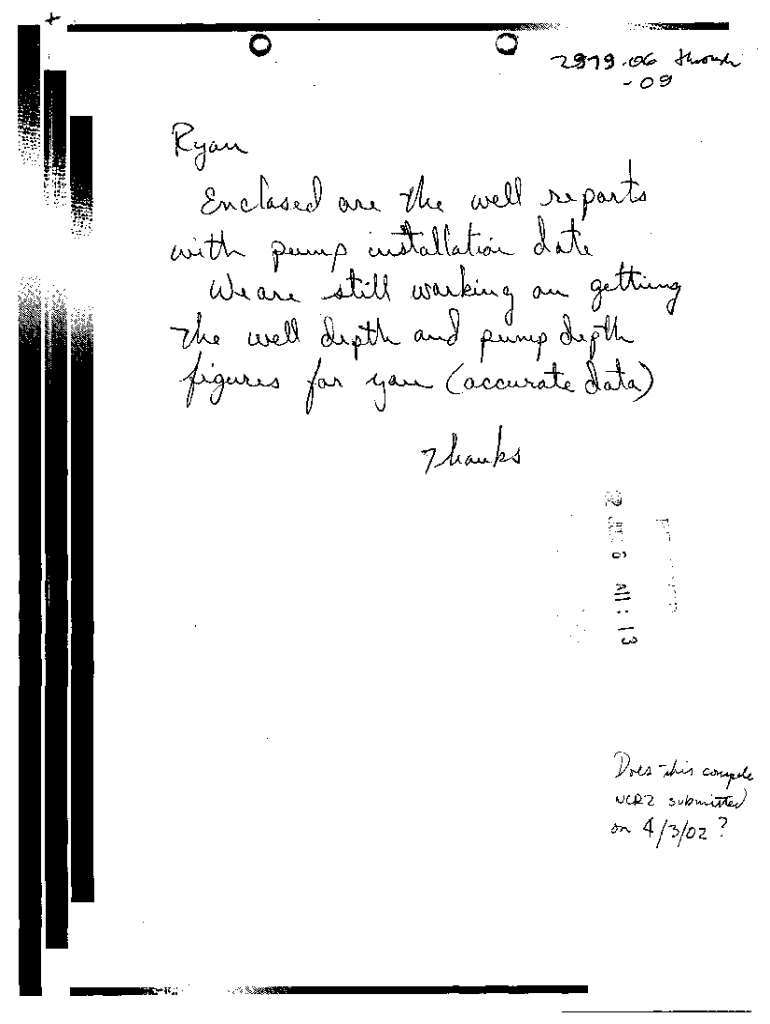 2979-06 through
-09
Ryan
Enclosed are the well reports
with pump installation date
We are still working on getting
the well depth and pump depth
figures for you (accurate data)
Thanks
A11:13
Does this complete
WCR2 submitted
on 4/3/02?